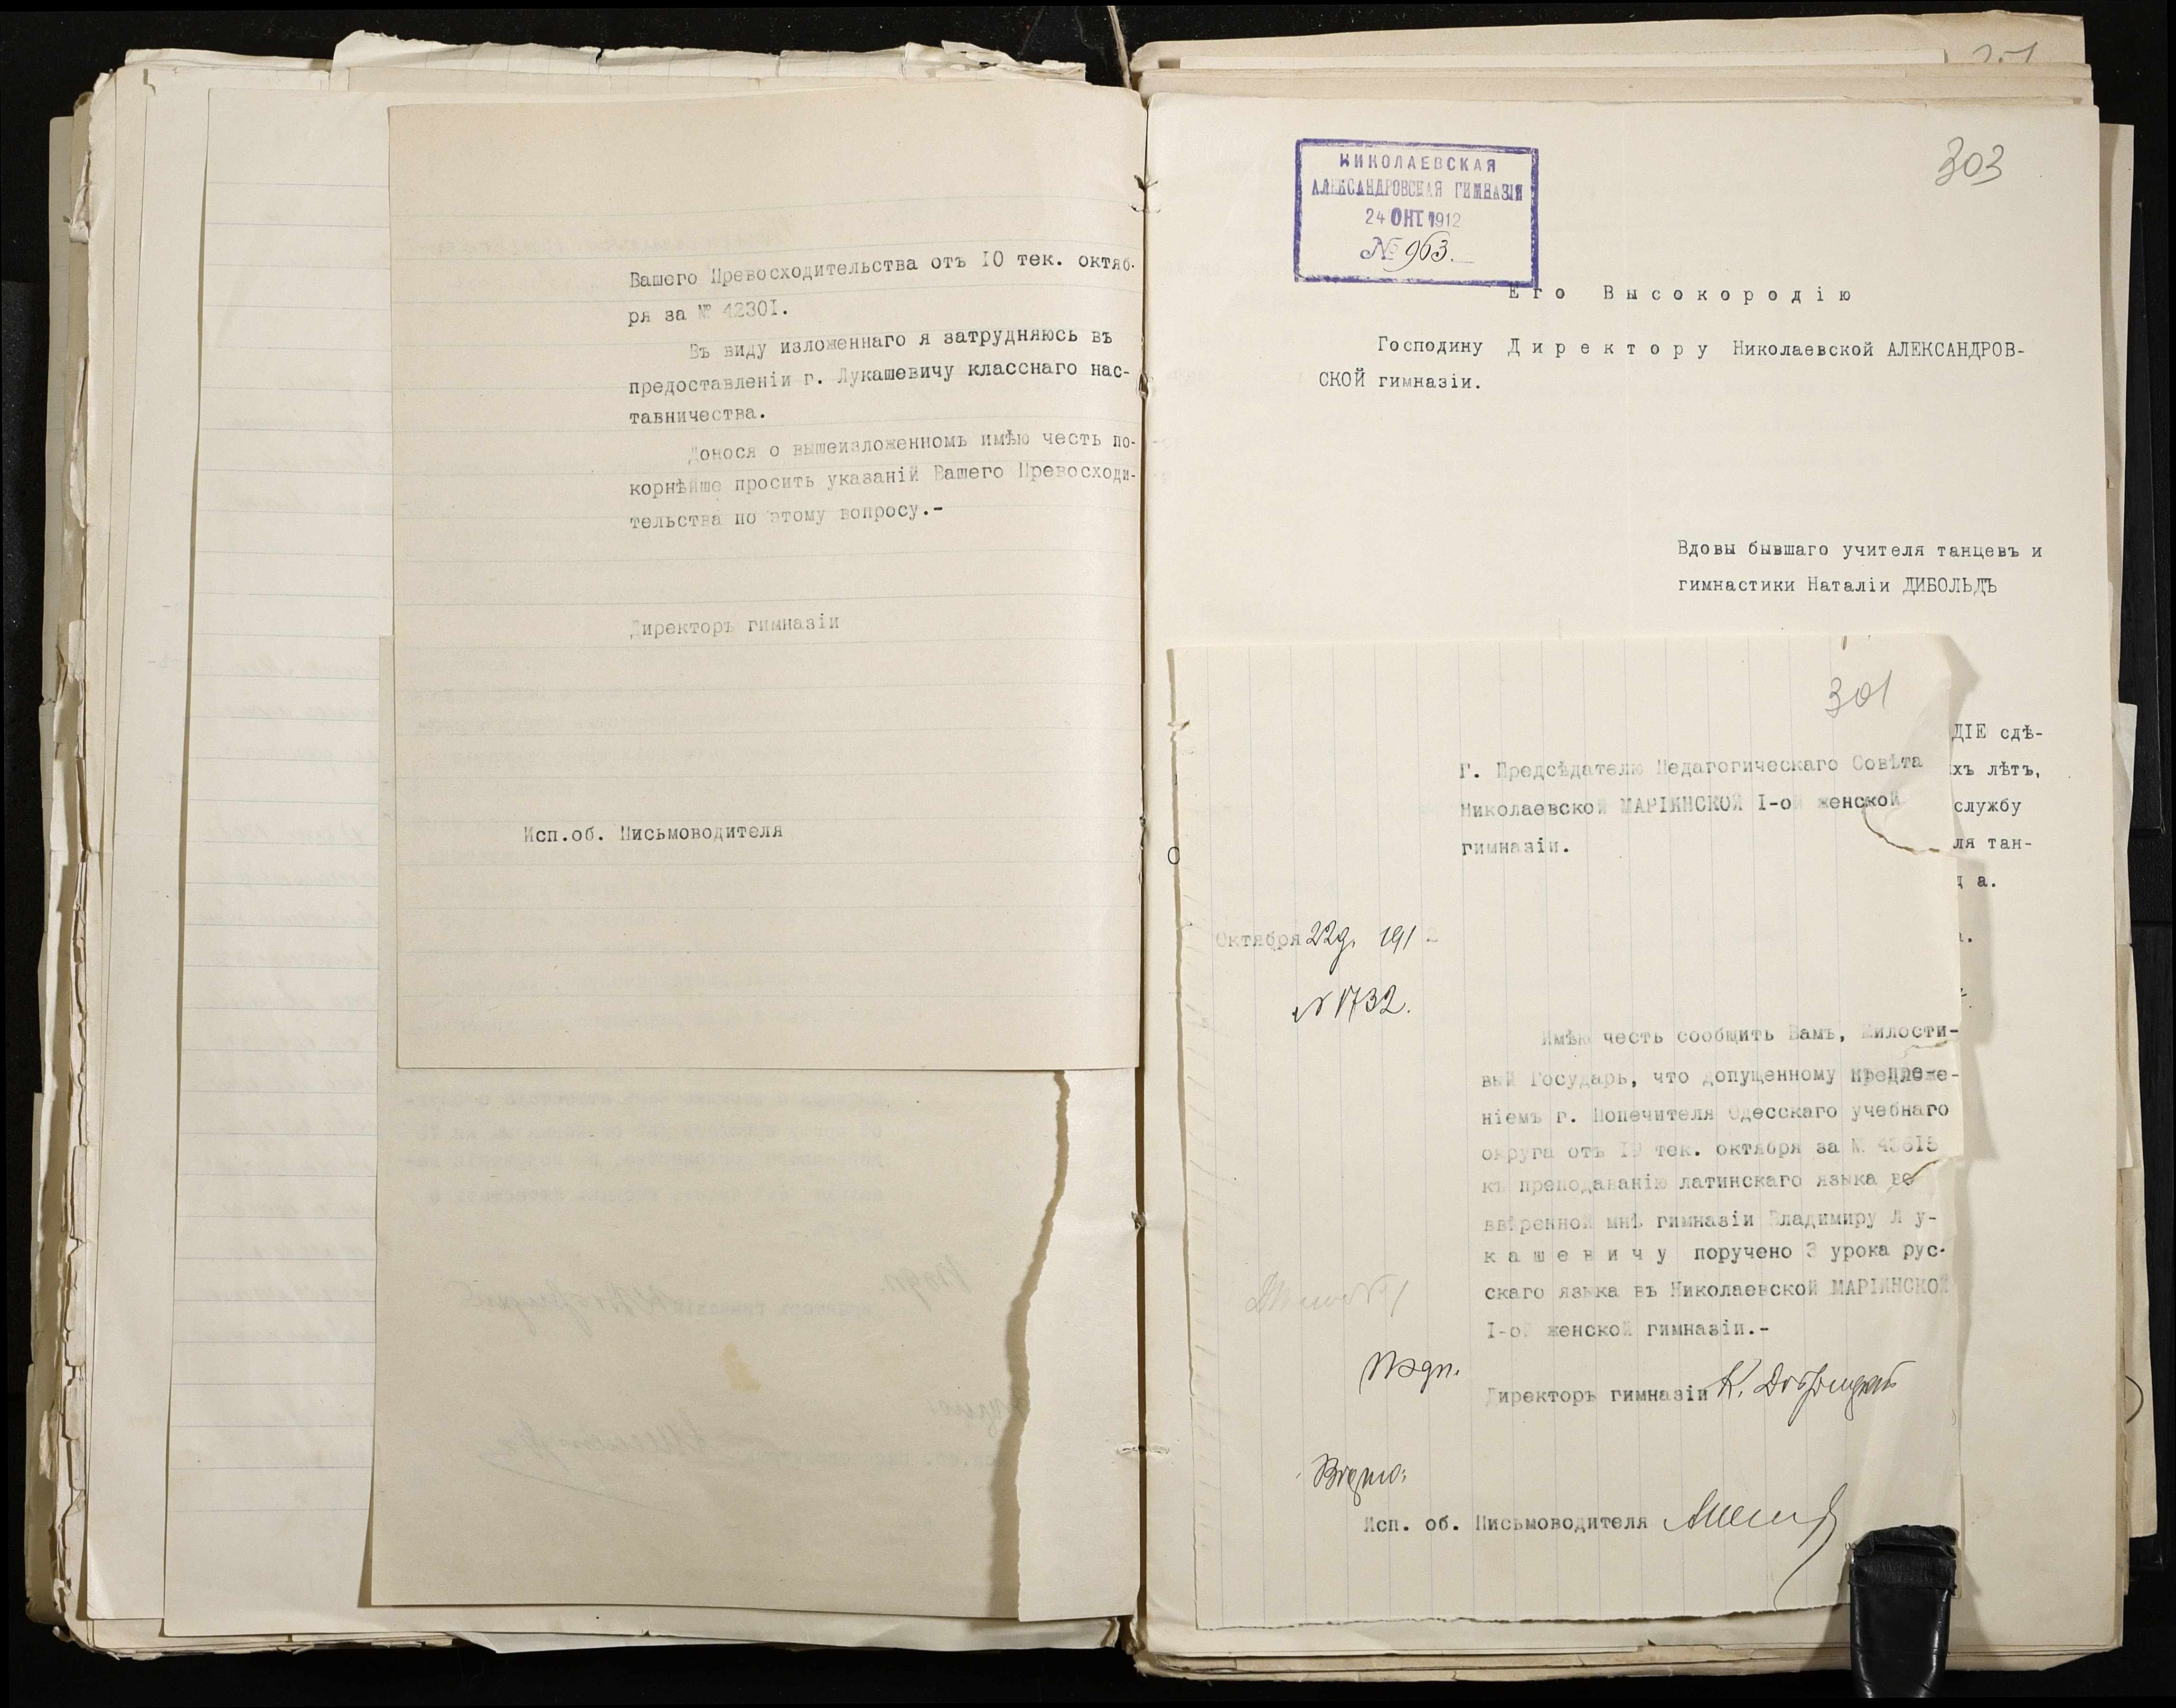 Вашего Превосходительства отъ 10 тек. октяб-
ря за № 42301.
Въ виду изложеннаго я затрудняюсь въ
предоставленіи г. Лукашевичу класснаго нас-
тавничества.
Донося о вышеизложенномъ имѣю честь по-
корнѣйше просить указаній Вашего Превосходи-
тельства по этому вопросу.-
Директоръ гимназіи
Исп.об. Письмоводителя
303
НИКОЛАЕВСКАЯ
АЛЕКСАНДРОВСКАЯ ГИМНАЗІЯ
24 ОКТ. 1912
№ 963.
Его Высокородію
Господину Директору Николаевской АЛЕКСАНДРОВ-
СКОЙ гимназіи.
Вдовы бывшаго учителя танцевъ и
гимнастики Наталіи ДИБОЛЬДЪ
ДІЕ сдѣ-
хъ лѣтъ,
службу
ля тан-
д а.
301
Г. Предсѣдателю Педагогическаго Совѣта
Николаевской МАРІИНСКОЙ I-ой женской
гимназіи.
Октября 22 д. 1912
№ 1732.
Имѣю честь сообщить Вамъ, Милости-
вый Государь, что допущенному предложе-
ніемъ г. Попечителя Одесскаго учебнаго
округа отъ 19 тек. октября за № 43615
къ преподаванію латинскаго языка во
ввѣренной мнѣ гимназіи Владимиру Лу-
кашевичу поручено 3 урока рус-
скаго языка въ Николаевской МАРІИНСКОЙ
I-ой женской гимназіи.-
Подп.
Директоръ гимназіи К.
Вѣрно:
Исп. об. Письмоводителя